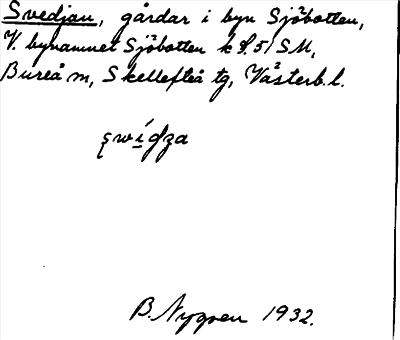 Svedjan, gårdar i byn Sjöbotten,
V. bynamnet Sjöbotten k f. 51 SM,
Bureå m, Skellefteå tg, Västerb. l.
B. Nygren 1932.